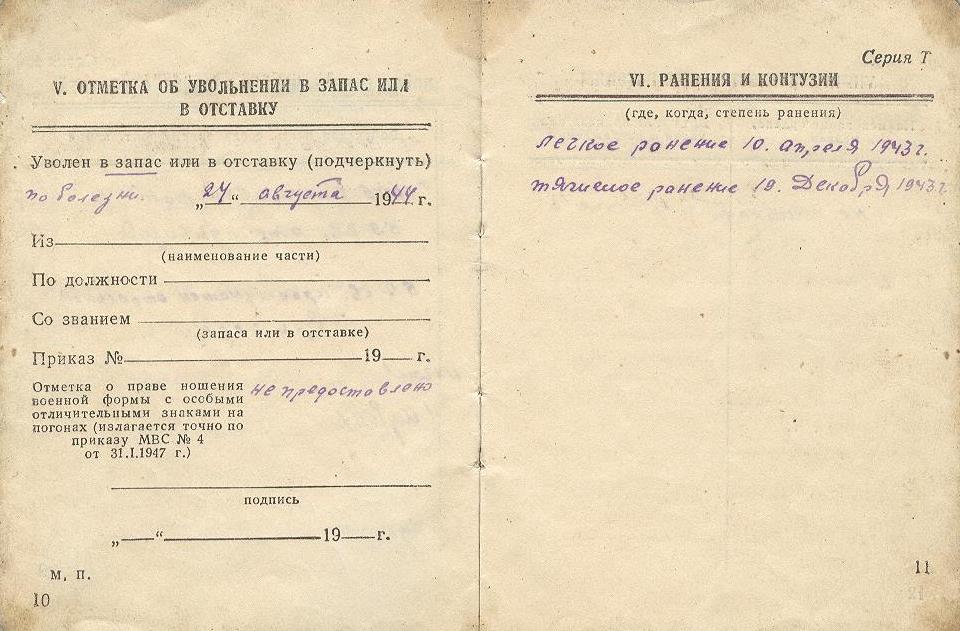 V. ОТМЕТКА ОБ УВОЛЬНЕНИИ В ЗАПАС ИЛИ
В ОТСТАВКУ
Уволен в запас или в отставку (подчеркнуть)
по болезни. „24“ августа 1944 г.
Из
(наименование части)
По должности
Со званием
(запаса или в отставке)
Приказ № 19 г.
Отметка о праве ношения
военной формы с особыми
отличительными знаками на
погонах (излагается точно по
приказу МВС № 4
от 31.I.1947 г.)
не предоставлено
подпись
„ “ 19 г.
М. П.
10
Серия Т
VI. РАНЕНИЯ И КОНТУЗИИ
(где, когда, степень ранения)
легкое ранение 10. апреля 1943 г.
тяжелое ранение 19. Декабря 1943 г.
11